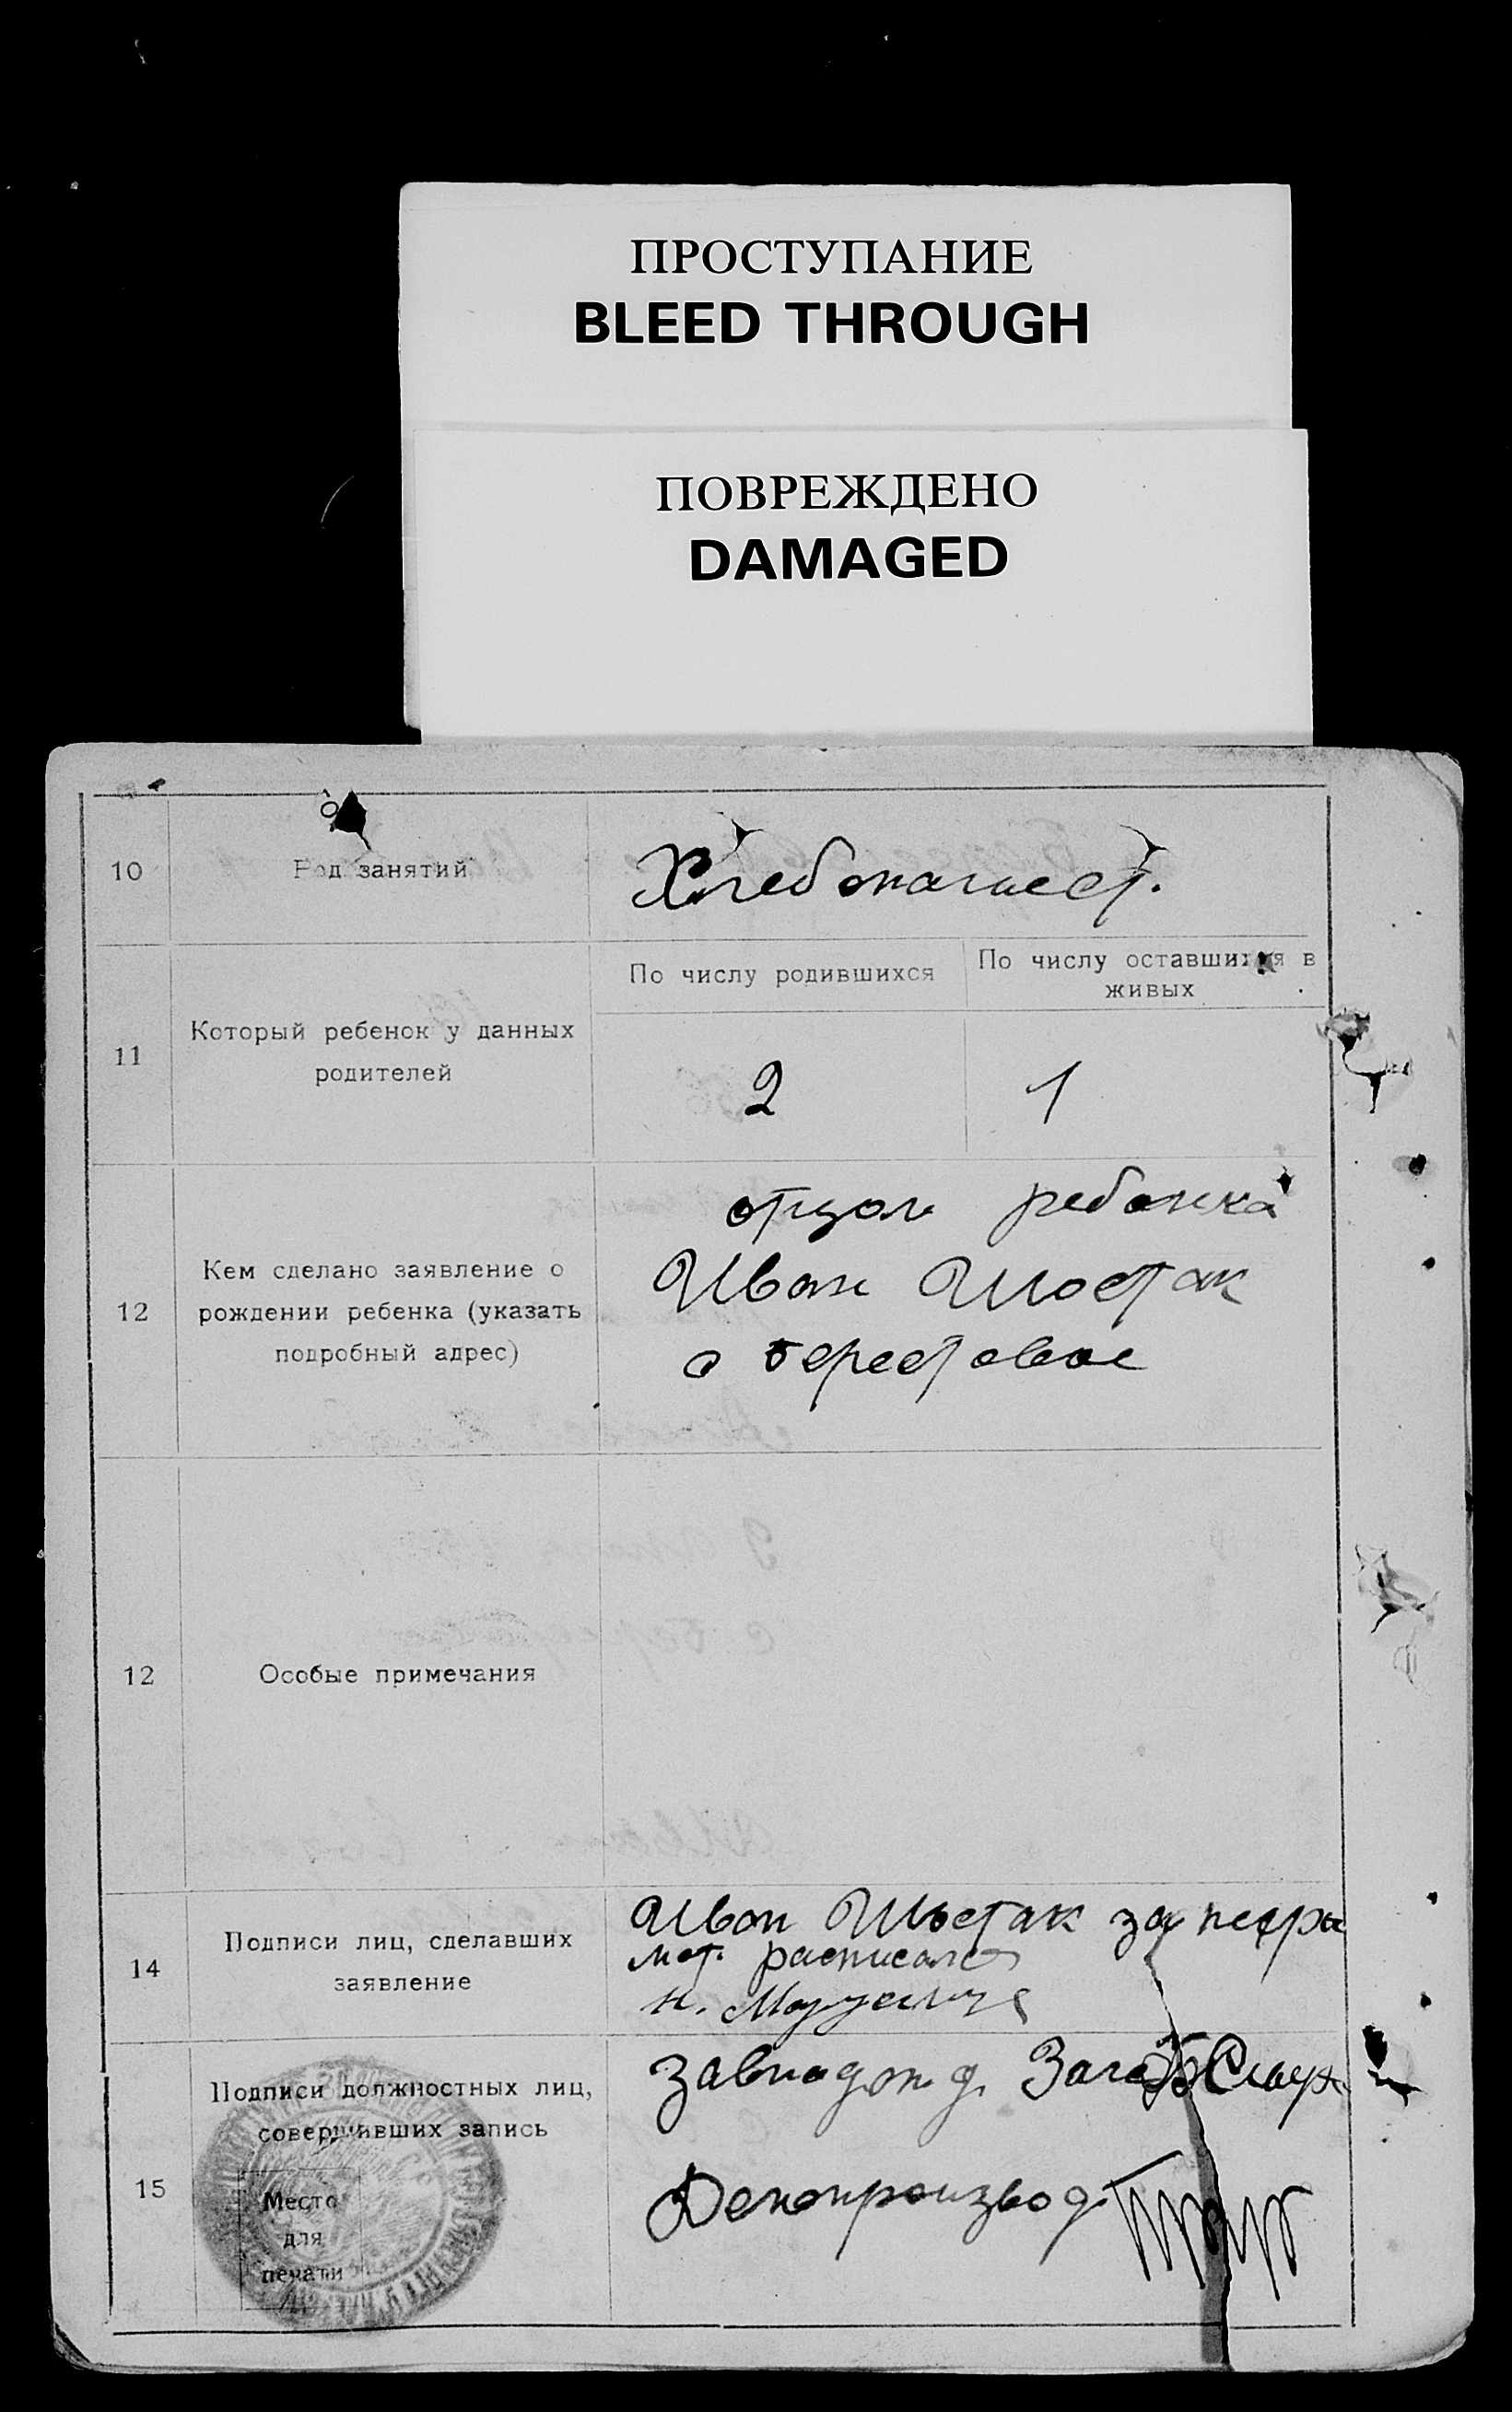 ПРОСТУПАНИЕ
BLEED THROUGH
ПОВРЕЖДЕНО
DAMAGED
10
Род занятий
Хлебопашест.
11
Который ребенок у данных
родителей
По числу родившихся
По числу оставшихся в
живых
2
1
12
Кем сделано заявление о
рождении ребенка (указать
подробный адрес)
отцом ребенка
Иван Шостак
с берестовое
12
Особые примечания
14
Подписи лиц, сделавших
заявление
Иван Шостак за негр
расписался
15
Подписи должностных лиц,
совершивших запись
Место
для
печати
Завподотд. Загс
Делопроизвод